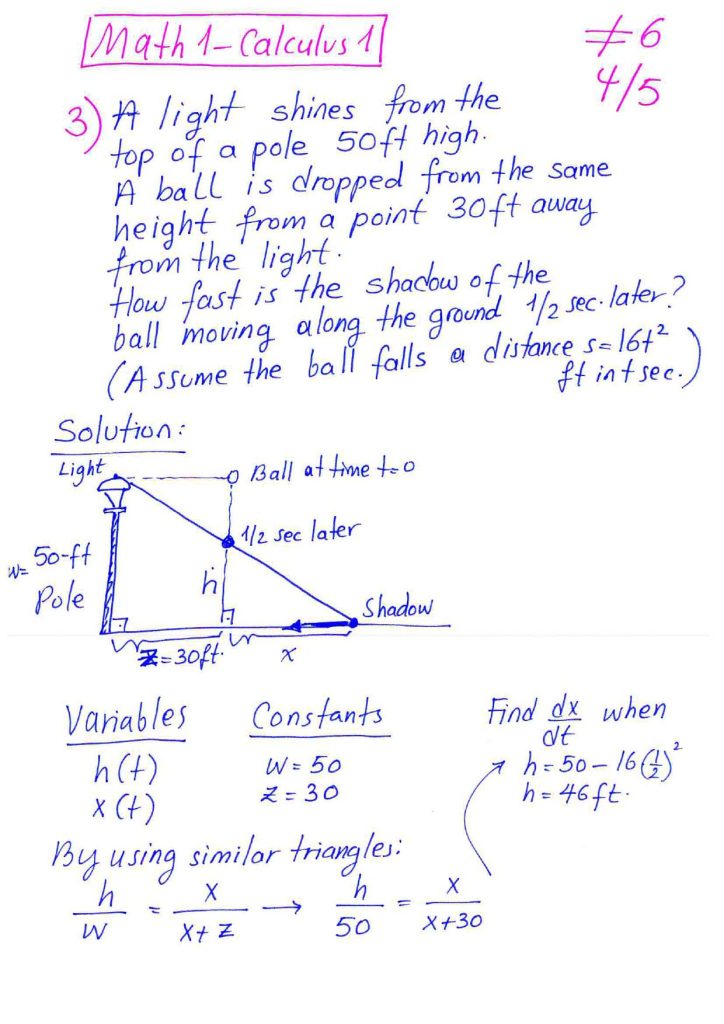 Math 1 - Calculus 1
≠6
4/5
3) A light shines from the
top of a pole 50ft high.
A ball is dropped from the same
height from a point 30ft away
from the light.
How fast is the shadow of the
ball moving along the ground 1/2 sec. later?
(Assume the ball falls a distance s=16t²
ft in t sec.)
Solution:
Light
Ball at time t=0
1/2 sec later
w= 50-ft
Pole
h
Shadow
z=30ft.
x
Variables
h(t)
x(t)
Constants
W=50
z=30
Find dx/dt when
h=50-16(1/2)²
h=46ft.
By using similar triangles:
h/w = x/x+z → h/50 = x/x+30